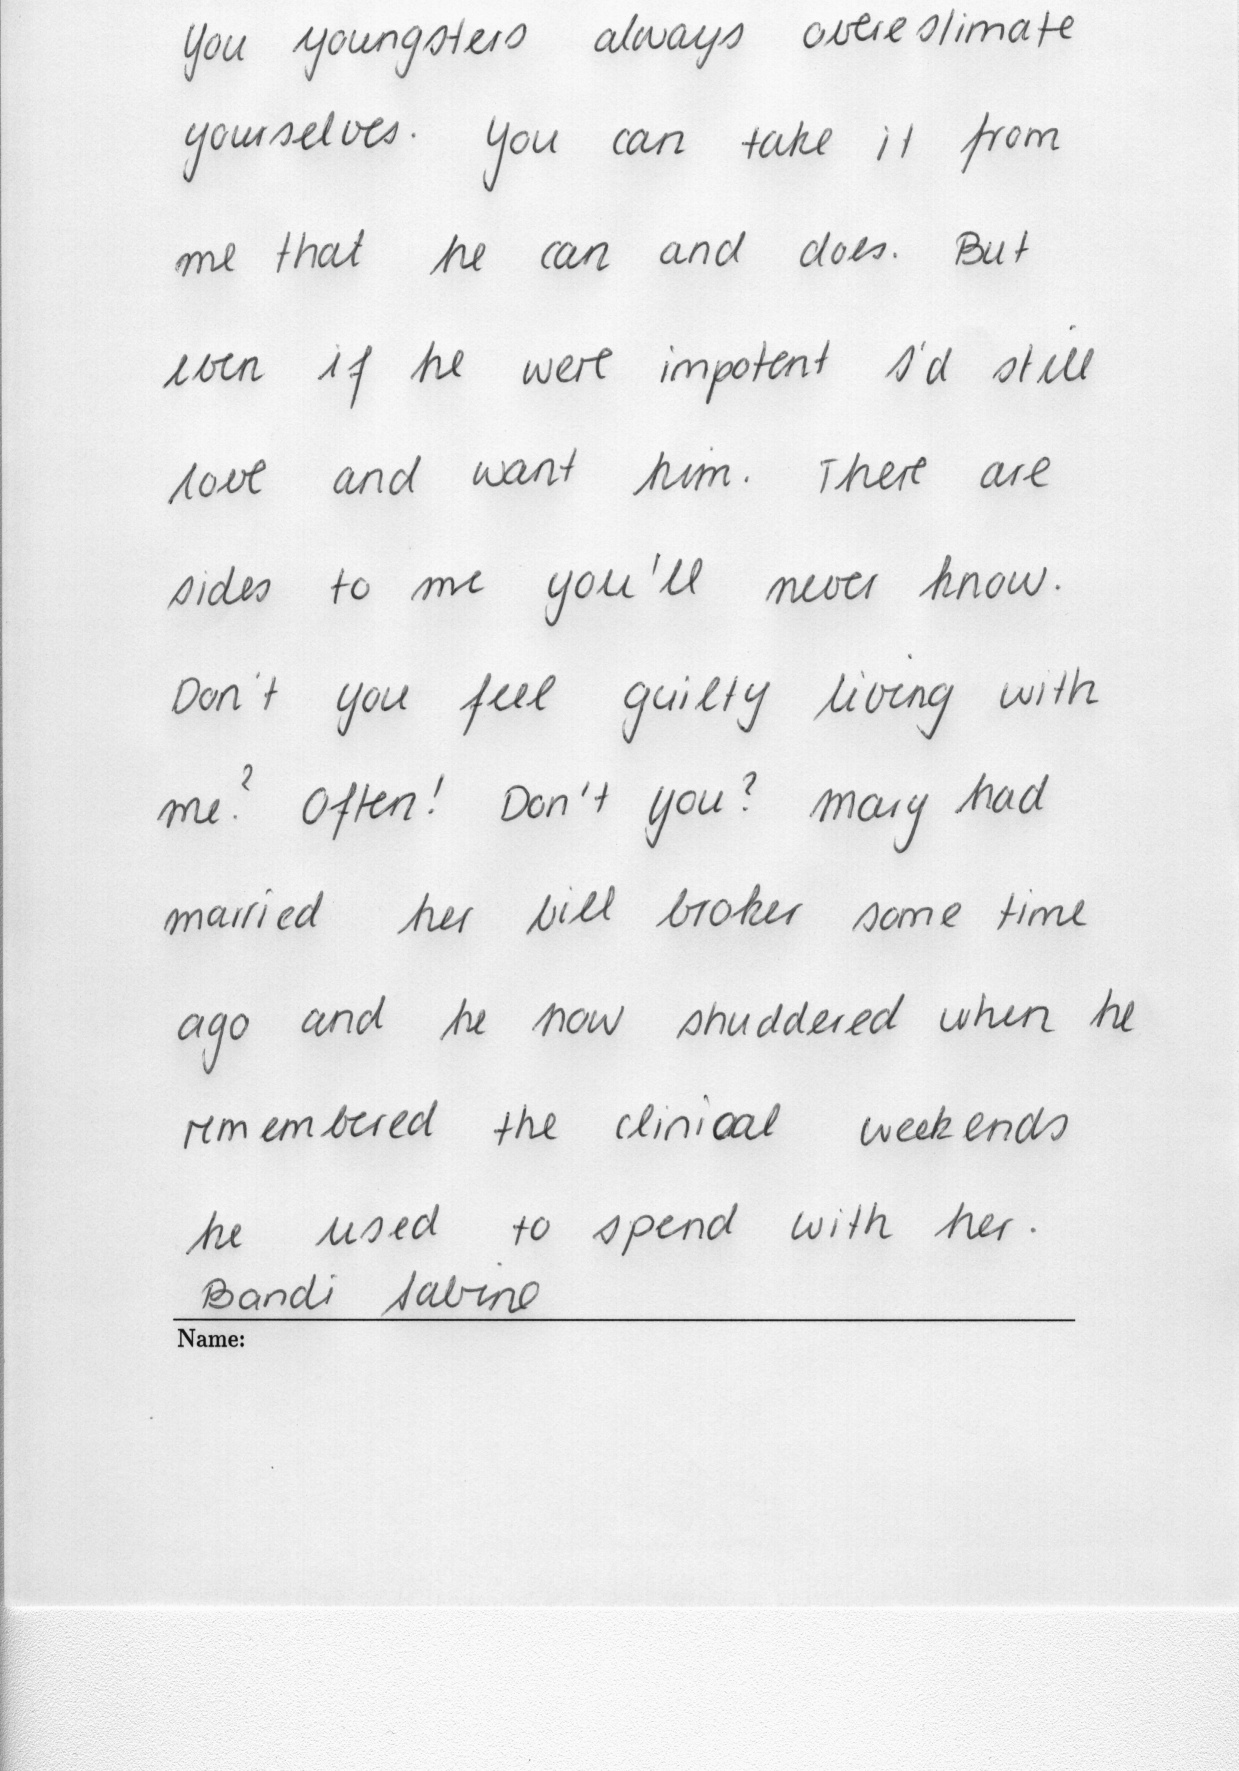 You youngsters always overestimate
yourselves. You can take it from
me that he can and does. But
even if he were impotent I'd still
love and want him. There are
sides to me you'll never know.
Don't you feel guilty living with
me? Often! Don't you? Mary had
married her bill broker some time
ago and he now shuddered when he
remembered the clinical weekends
he used to spend with her.
Bandi Sabine
Name: